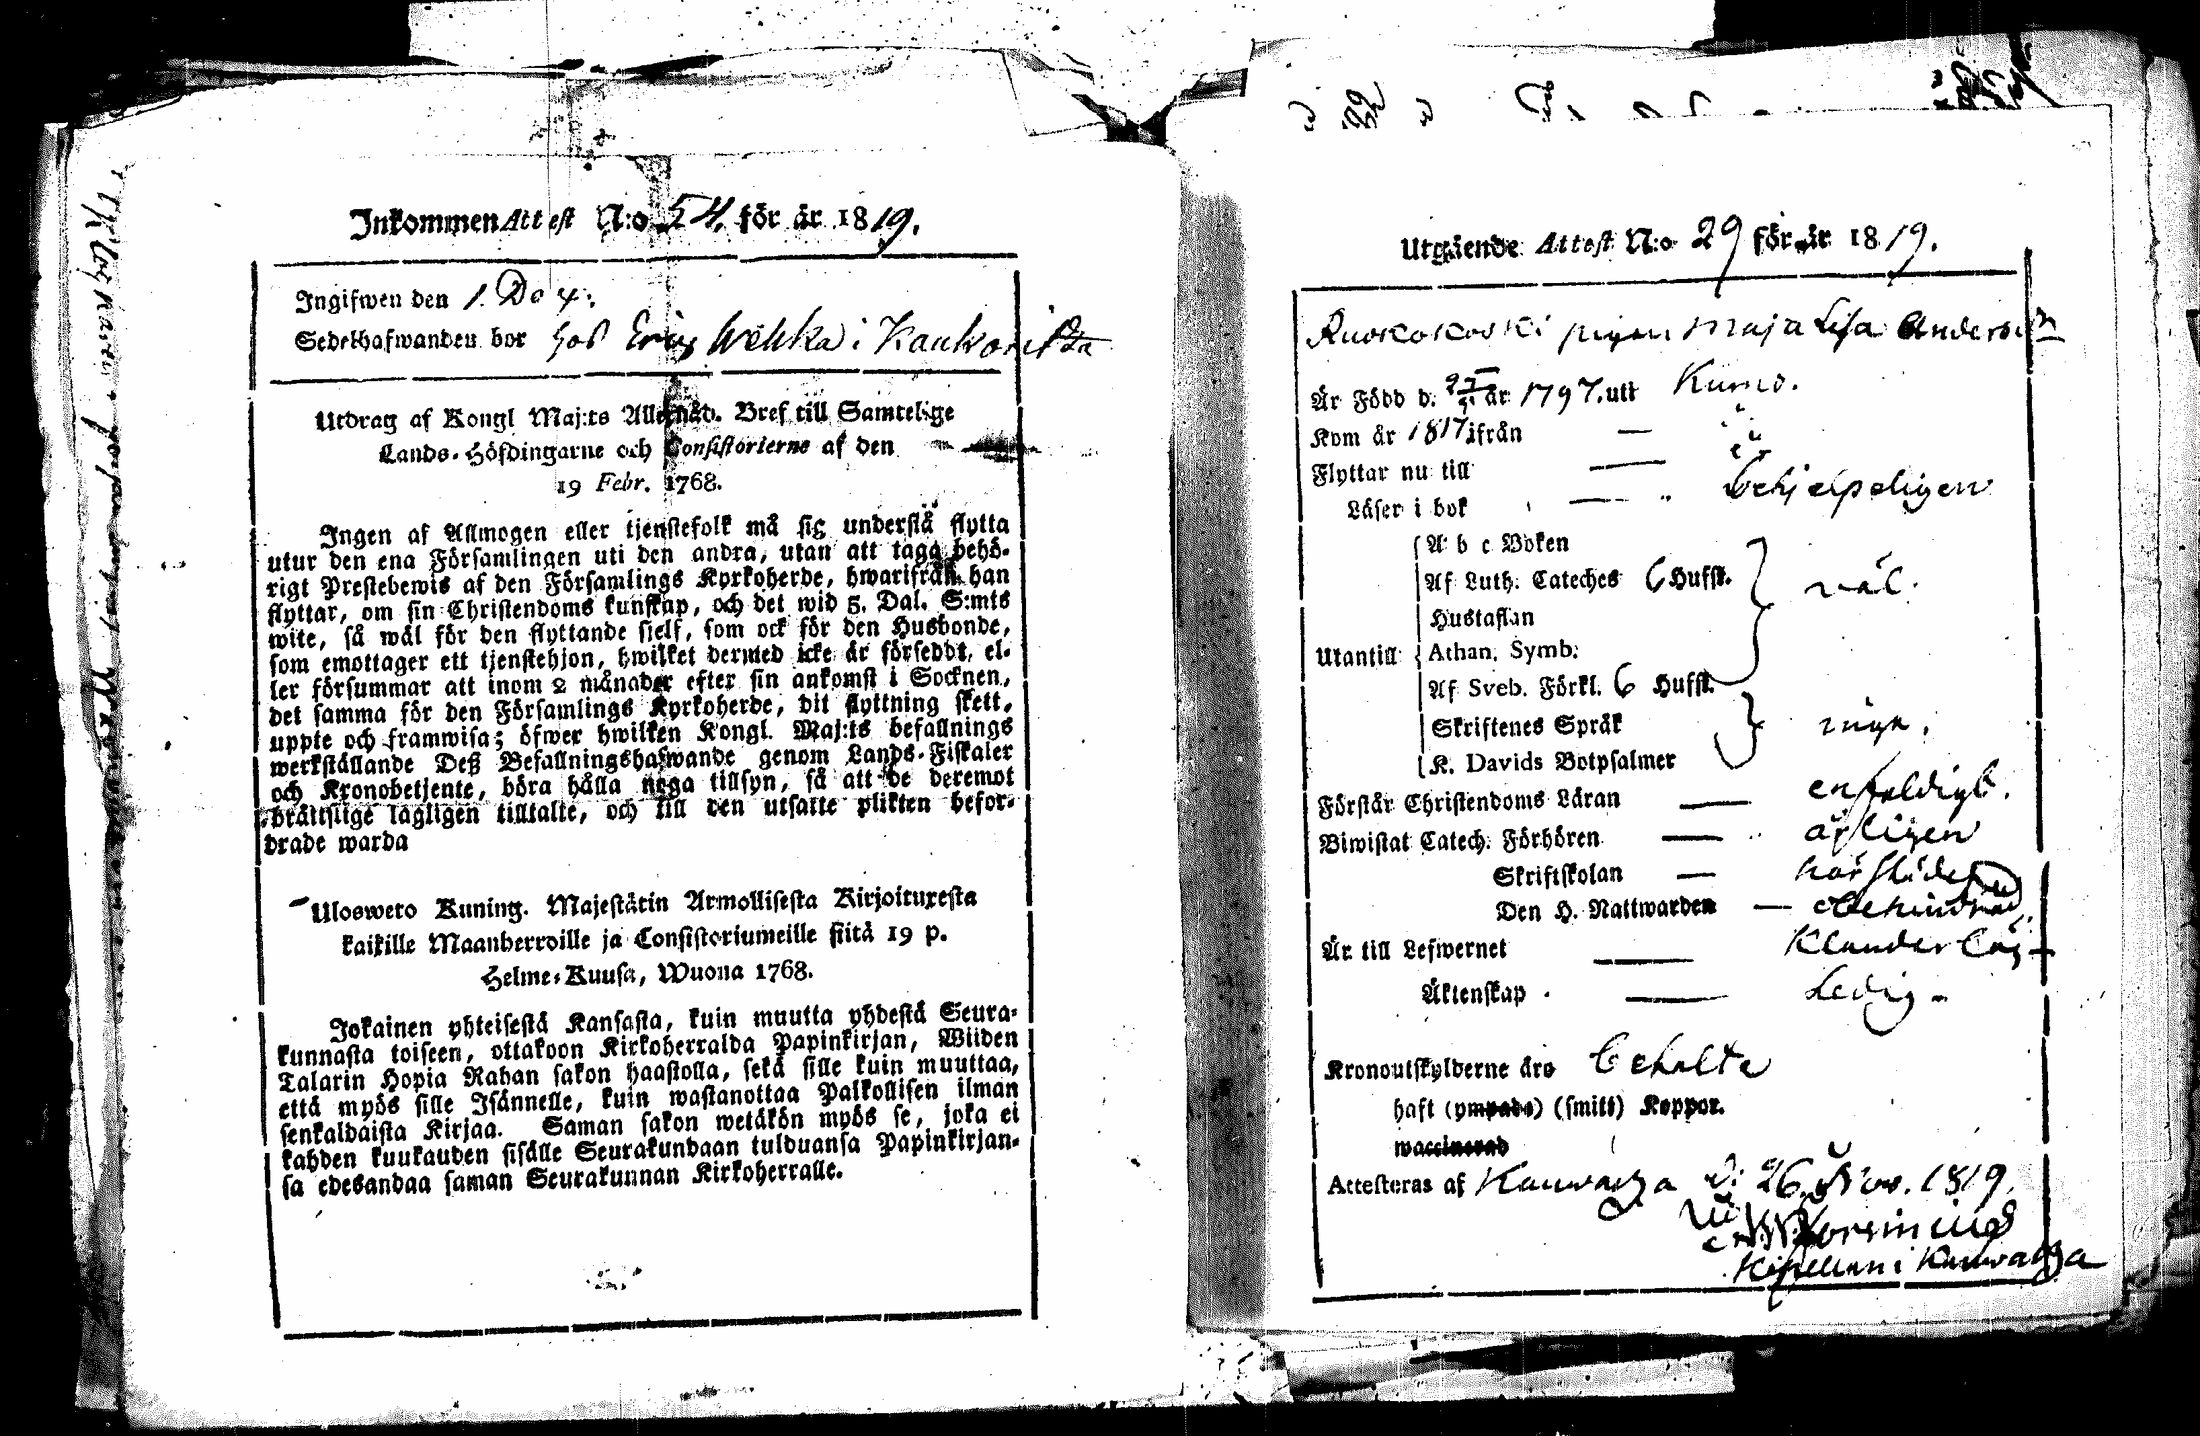 Inkommen Attest N:o 54. för år 1819.
Ingifwen den 1. De
Sedelhafwanden bor hos Eric Wehka i
Utdrag af Kongl Maj:ts Allernåd. Bref till Samtelige
Lands-Höfdingarne och Consistorierne af den
19 Febr. 1768.
Ingen af Allmogen eller tjenstefolk må sig understå flytta
utur den ena Församlingen uti den andra, utan att taga behö-
rigt Prestebewis af den Församlings Kyrkoherde, hwarifrån han
flyttar, om sin Christendoms kunskap, och det wid 5. Dal. S:mts
wite, så wäl för den flyttande sjelf, som ock för den Husbonde,
som emottager ett tjenstehjon, hwilket dermed icke är försedbt, el-
ler försummar att inom 2 månader efter sin ankomst i Socknen,
det samma för den Församlings Kyrkoherde, dit flyttning skett,
uppte och framwisa; öfwer hwilken Kongl. Maj:ts befallnings
werkställande Deß Befallningshafwande genom Lands-Fiskaler
och Kronobetjente, böra hålla noga tillsyn, så att de deremot
brättslige lagligen tilltalte, och till den utsatte plikten befor-
drade warda
Ulosweto Kuning. Majestätin Armollisesta Kirjoituxesta
kaikille Maanherroille ja Consistoriumeille siitä 19 p.
Helme-Kuusa, Wuona 1768.
Jokainen yhteisestä Kansasta, kuin muutta yhdestä Seura-
kunnasta toiseen, ottakoon Kirkoherralda Papinkirjan, Wiiden
Talarin Hopia Rahan sakon haastolla, sekä sille kuin muuttaa,
että myös sille Isännelle, kuin wastanottaa Palkollisen ilman
senkaldaista Kirjaa. Saman sakon wetäkön myös se, joka ei
kahden kuukauden sisälle Seurakundaan tulduansa Papinkirjan-
sa edesandaa saman Seurakunnan Kirkoherralle.
Utgående Attest N:o 29 för år 1819.
Ruokokoski pigan Maja Lisa
Är Född d. år 1797. utt Kumo.
Kom år 1817 ifrån —
Flyttar nu till —
Läser i bok — behjelpeligen
A b c Boken
Af Luth. Cateches 6 Hufst. wäl.
Hustaflan
Utantill Athan. Symb.
Af Sveb. Förkl. 6 Hufst.
Skriftenes Språk
K. Davids Botpsalmer
Förstår Christendoms Läran — enfaldigt.
Biwistat Catech. Förhören — årligen
Skriftskolan —
Den H. Nattwarden — obehindrad,
Är till Lefwernet — Klanderlös
Äktenskap — Ledig
Kronoutskylderne äro betalte
haft (ympade) (smitt) Koppor.
waccinerad
Attesteras af Kauwatza d. 26. Nov. 1819.
Kapellan i Kauwatza